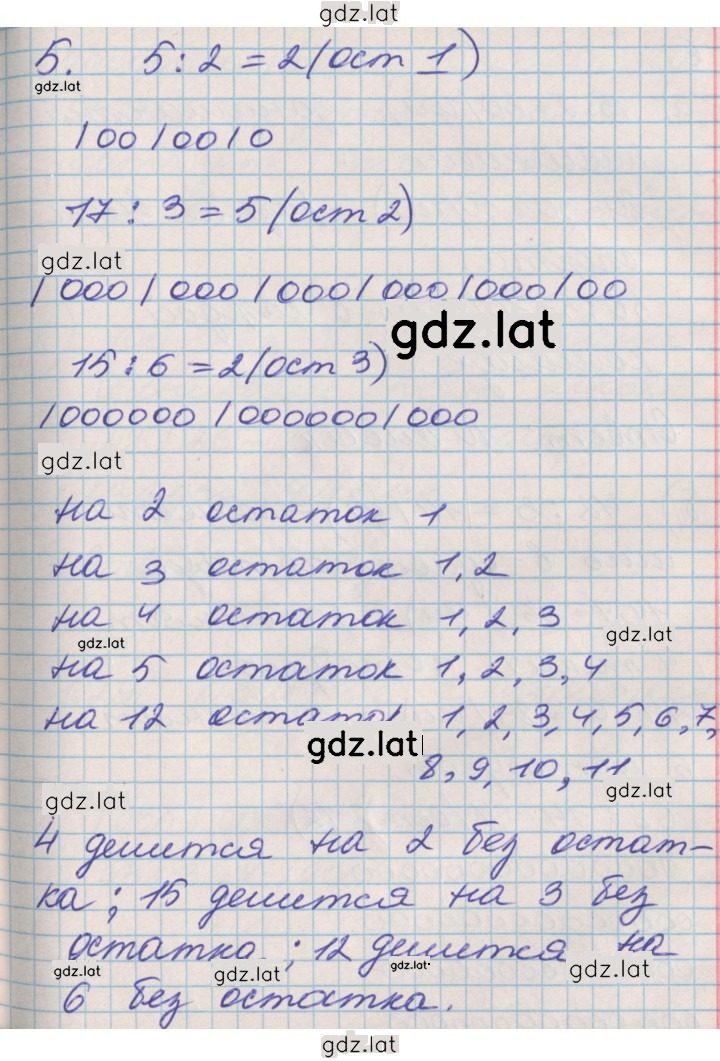 gdz.lat
5. 5 : 2 = 2 (ост 1)
gdz.lat
|00|00|0
17 : 3 = 5 (ост 2)
gdz.lat
|000|000|000|000|000|00
gdz.lat
15 : 6 = 2 (ост 3)
|000000|000000|000
gdz.lat
на 2 остаток 1
на 3 остаток 1, 2
на 4 остаток 1, 2, 3
gdz.lat gdz.lat
на 5 остаток 1, 2, 3, 4
на 12 остаток 1, 2, 3, 4, 5, 6, 7,
gdz.lat
8, 9, 10, 11
gdz.lat gdz.lat
4 делится на 2 без остат-
ка; 15 делится на 3 без
остатка; 12 делится на
gdz.lat gdz.lat gdz.lat gdz.lat
6 без остатка.
gdz.lat